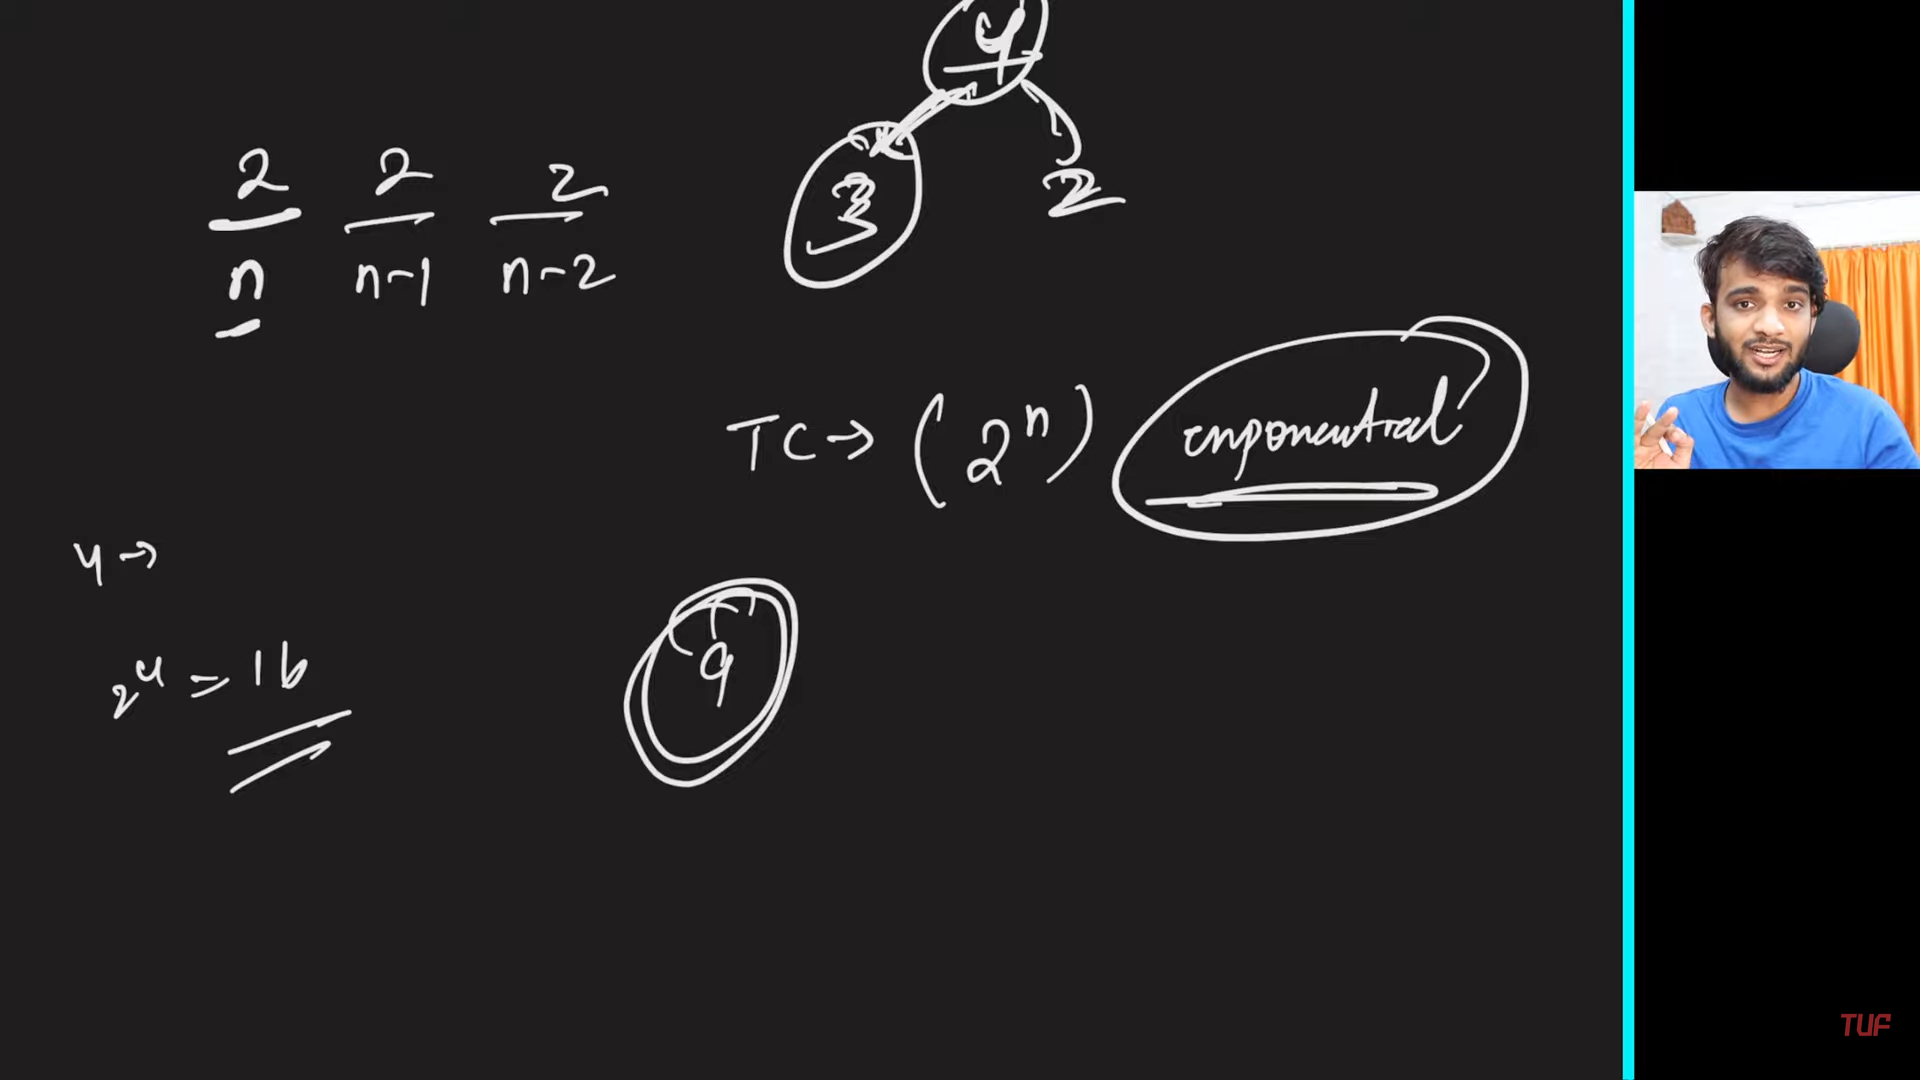 4
3 2
2 2 2
n n-1 n-2
TC → (2ⁿ) exponential
4 →
2⁴ = 16
9
TUF